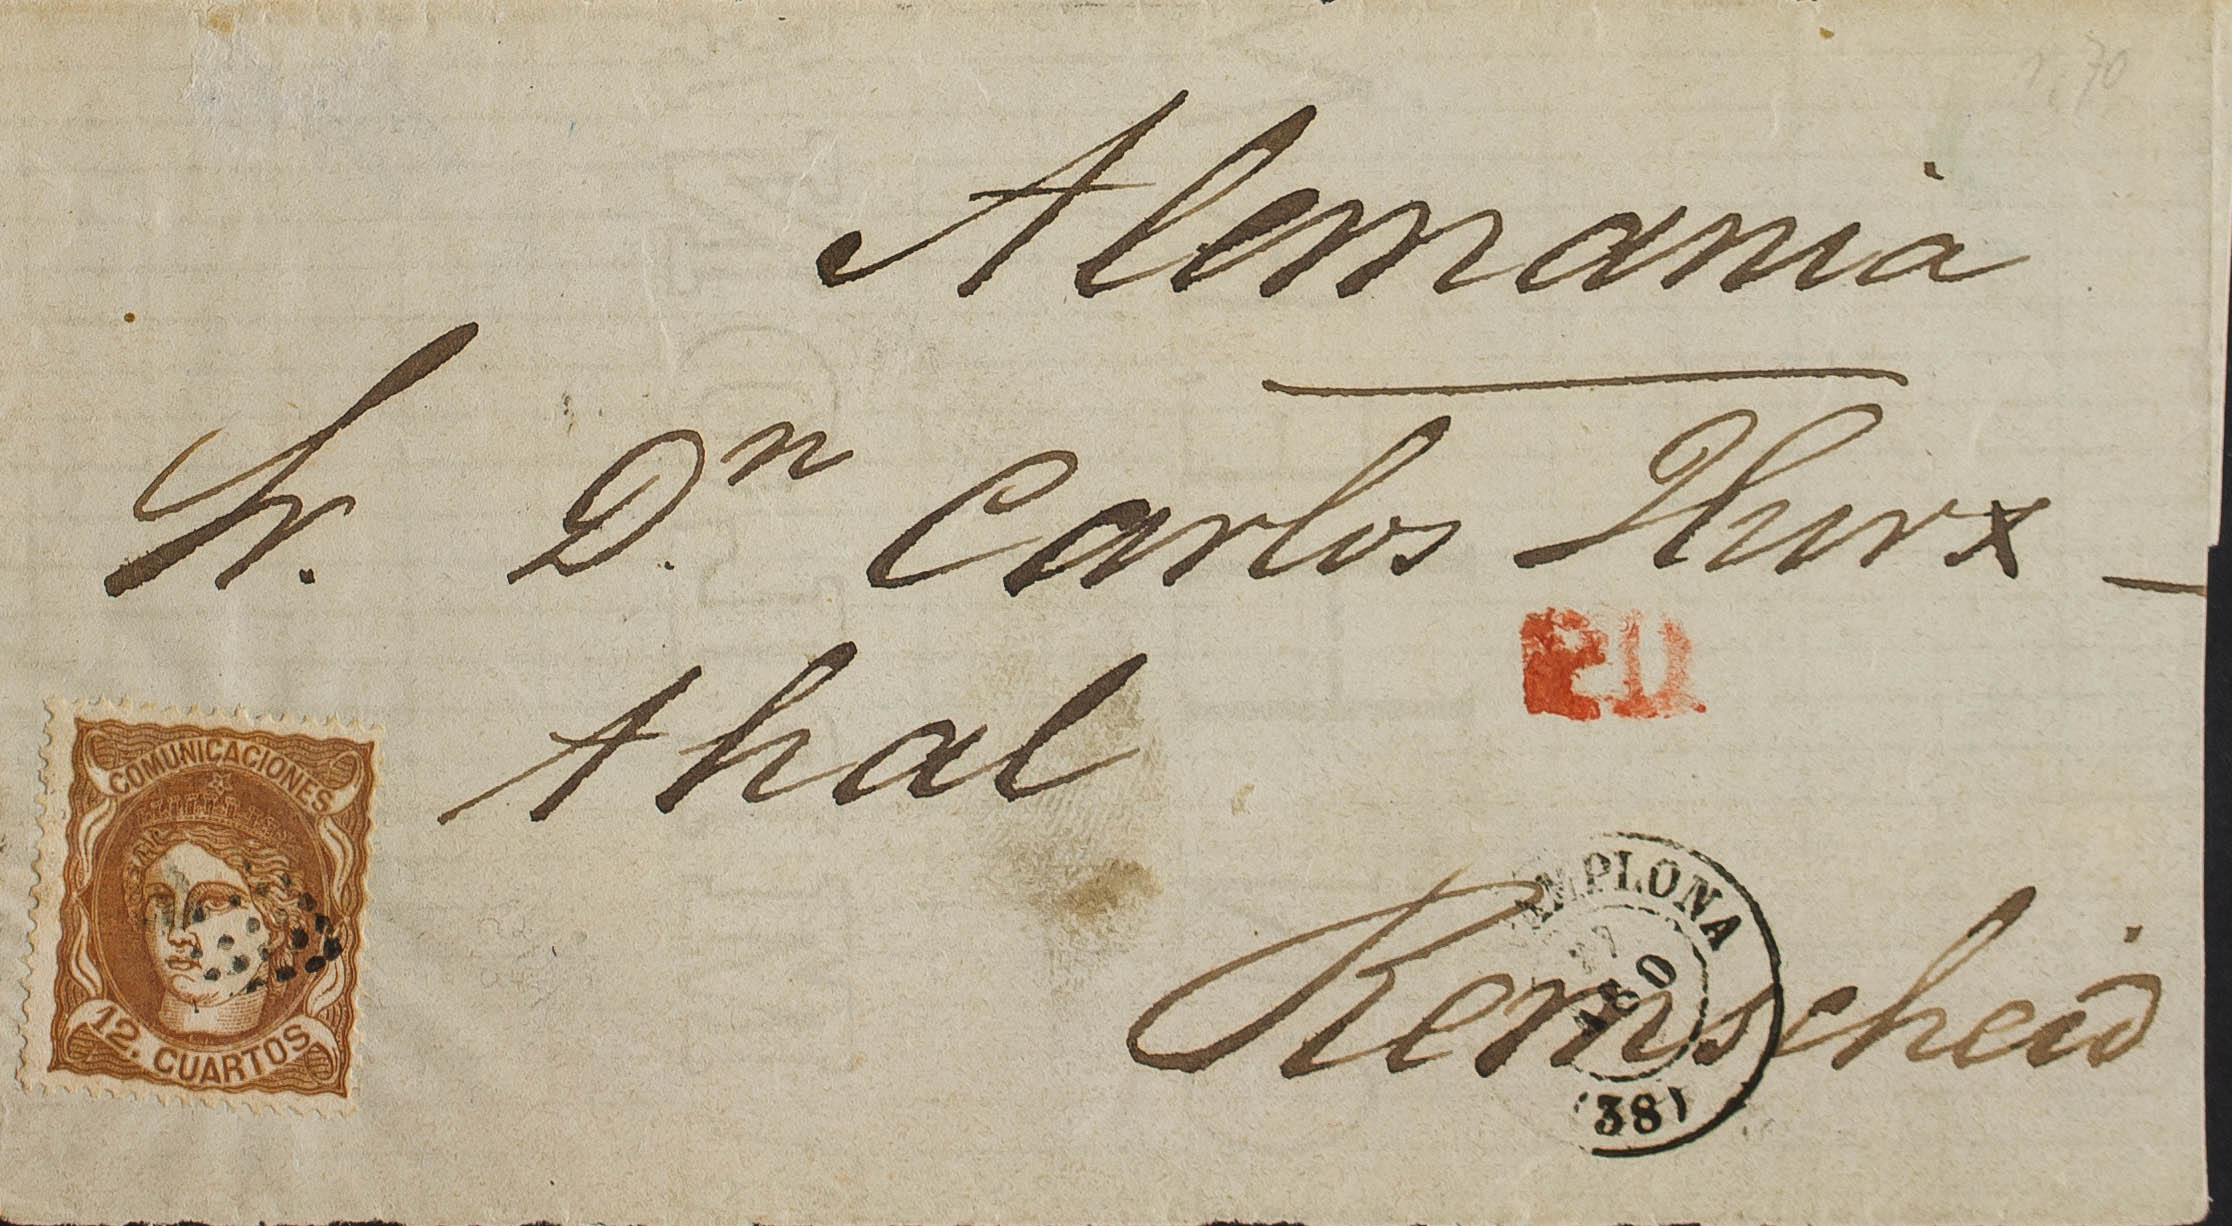 Alemania
Sr. D.n Carlos Thurx-
thal
PD
Remscheid
COMUNICACIONES
12. CUARTOS
AMPLONA
AGO
(38)